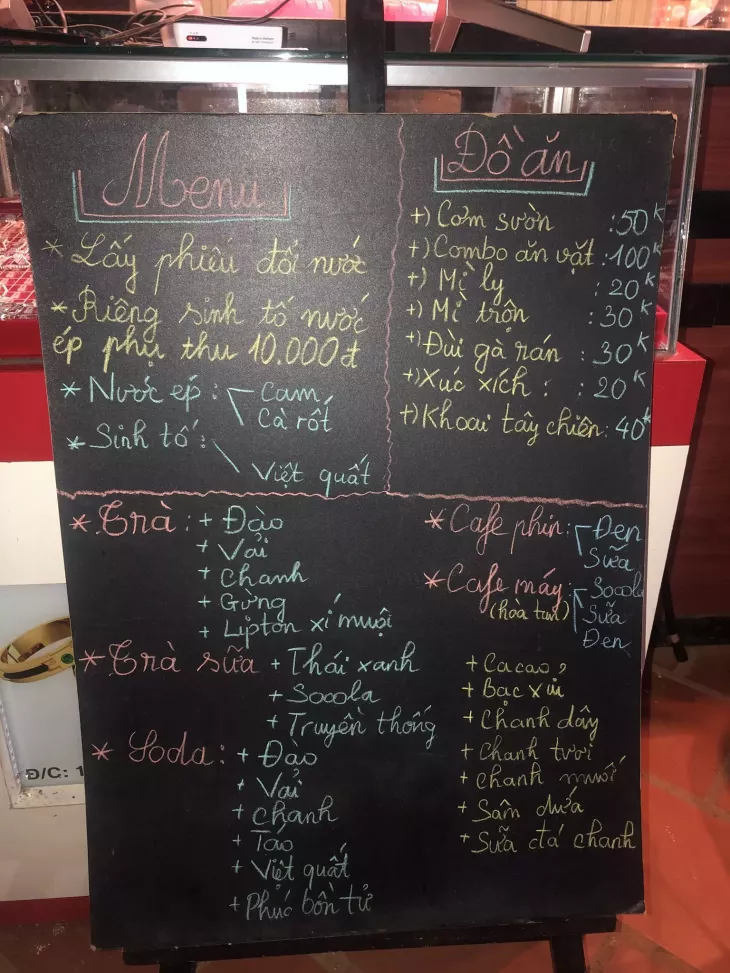 Menu
* Lấy phiếu đổi nước
* Riêng sinh tố nước
ép phụ thu 10.000đ
* Nước ép: Cam
Cà rốt
* Sinh tố:
Việt quất
Đồ ăn
+) Cơm sườn : 50K
+) Combo ăn vặt : 100K
+) Mì ly : 20K
+) Mì trộn : 30K
+) Đùi gà rán : 30K
+) Xúc xích : : 20K
+) Khoai tây chiên : 40K
* Trà : + Đào
+ Vải
+ chanh
+ Gừng
+ Lipton xí muội
* Trà sữa + Thái xanh
+ Socola
+ Truyền thống
* Soda : + Đào
+ Vải
+ chanh
+ Táo
+ Việt quất
+ Phúc bồn tử
* Cafe phin : Đen
Sữa
* Cafe máy : Socola
(hòa tan) Sữa
Đen
+ Cacao
+ Bạc xỉu
+ Chanh dây
+ Chanh tươi
+ chanh muối
+ Sâm dứa
+ Sữa đá chanh
Đ/C: 1